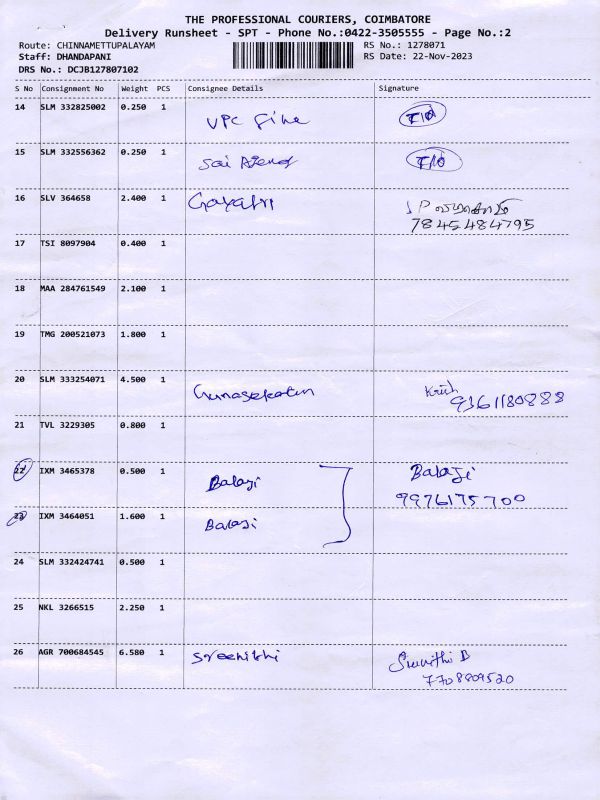 THE PROFESSIONAL COURIERS, COIMBATORE
Delivery Runsheet - SPT - Phone No.:0422-3505555 - Page No.:2
Route: CHINNAMETTUPALAYAM RS No.: 1278071
Staff: DHANDAPANI RS Date: 22-Nov-2023
DRS No.: DCJB127807102
S No Consignment No Weight PCS Consignee Details Signature
14 SLM 332825002 0.250 1
15 SLM 332556362 0.250 1 Sai
16 SLV 364658 2.400 1 Gayatri
7845484795
17 TSI 8097904 0.400 1
18 MAA 284761549 2.100 1
19 TMG 200521073 1.800 1
20 SLM 333254071 4.500 1 Gunasekaran
9361180888
21 TVL 3229305 0.800 1
22 IXM 3465378 0.500 1 Balaji Balaji
9976175700
23 IXM 3464051 1.600 1 Balaji
24 SLM 332424741 0.500 1
25 NKL 3266515 2.250 1
26 AGR 700684545 6.580 1
7708809520